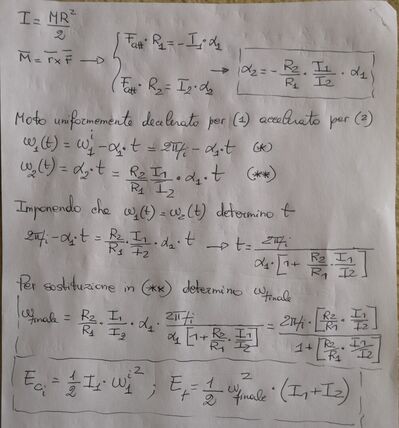 I = MR²/2
M̅ = r̅ x F̅ → { F_att · R₁ = - I₁ · α₁
F_att · R₂ = I₂ · α₂ → α₂ = - R₂/R₁ · I₁/I₂ · α₁
Moto uniformemente decelerato per (1) accelerato per (2)
ω₁(t) = ω₁ⁱ - α₁ · t = 2πfi - α₁ · t (*)
ω₂(t) = α₂ · t = R₂/R₁ · I₁/I₂ · α₁ · t (**)
Imponendo che ω₁(t) = ω₂(t) determino t
2πfi - α₁ · t = R₂/R₁ · I₁/I₂ · α₁ · t → t = 2πfi / α₁ · [1 + R₂/R₁ · I₁/I₂]
Per sostituzione in (**) determino ω finale
ω finale = R₂/R₁ · I₁/I₂ · α₁ · 2πfi / α₁ [1 + R₂/R₁ · I₁/I₂] = 2πfi · [R₂/R₁ · I₁/I₂] / 1 + [R₂/R₁ · I₁/I₂]
E_ci = 1/2 I₁ · ω₁ⁱ² ; E_f = 1/2 ω² finale · (I₁ + I₂)